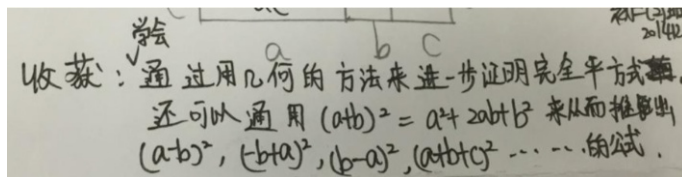 a b c
学会
收获：通过用几何的方法来进一步证明完全平方式
还可以通用 (a+b)² = a²+2ab+b² 来从而推导出
(a-b)², (-b+a)², (b-a)², (a+b+c)² …… 的公式.